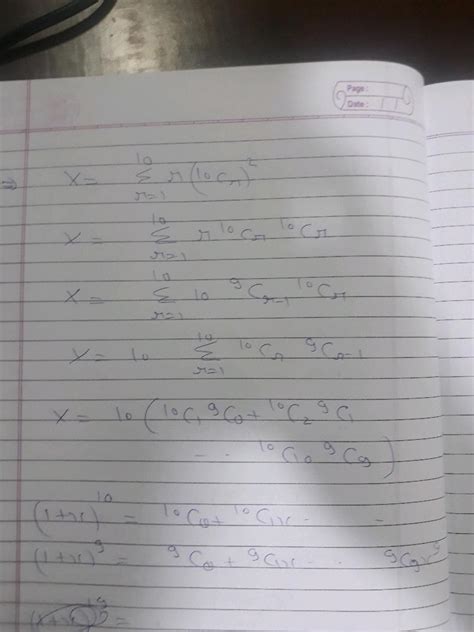 Page :
Date :
⇒ X = Σ_{r=1}^{10} r (¹⁰Cr)²
X = Σ_{r=1}^{10} r ¹⁰Cr ¹⁰Cr
X = Σ_{r=1}^{10} 10 ⁹C_{r-1} ¹⁰Cr
X = 10 Σ_{r=1}^{10} ¹⁰Cr ⁹C_{r-1}
X = 10 (¹⁰C₁ ⁹C₀ + ¹⁰C₂ ⁹C₁
- - ¹⁰C₁₀ ⁹C₉)
(1+x)¹⁰ = ¹⁰C₀ + ¹⁰C₁x - - -
(1+x)⁹ = ⁹C₀ + ⁹C₁x - - ⁹C₉x⁹